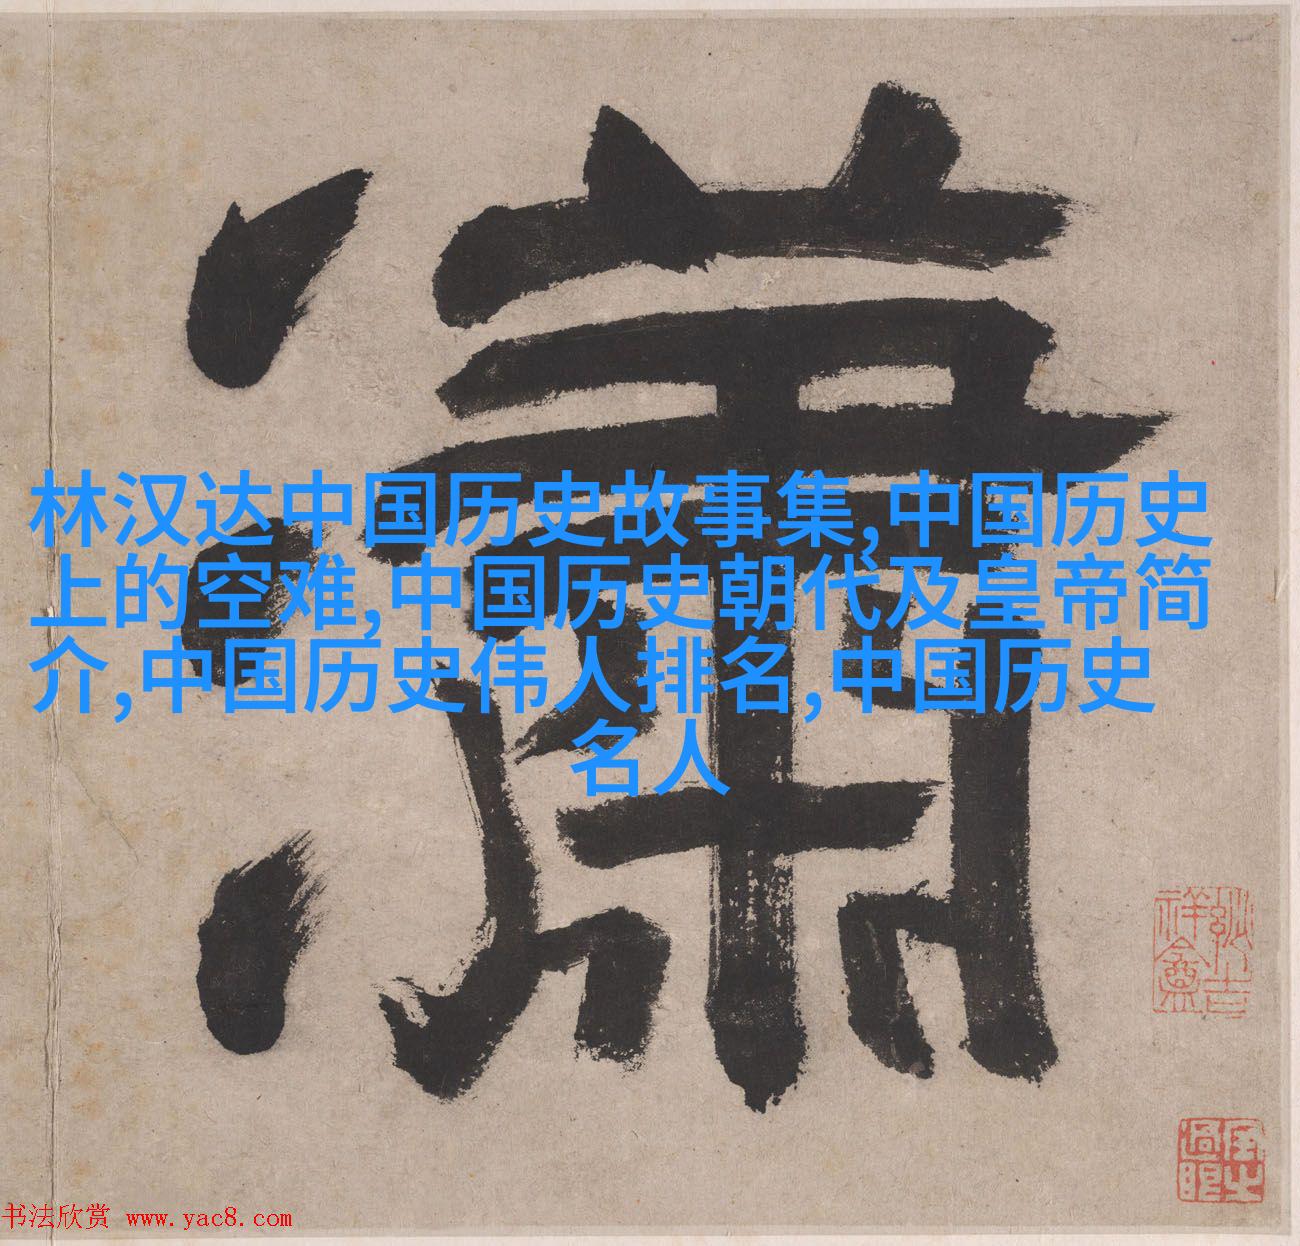 潇
林汉达中国历史故事集,中国历史
上的空难,中国历史朝代及皇帝简
介,中国历史伟人排名,中国历史
名人
书法欣赏 www.yac8.com